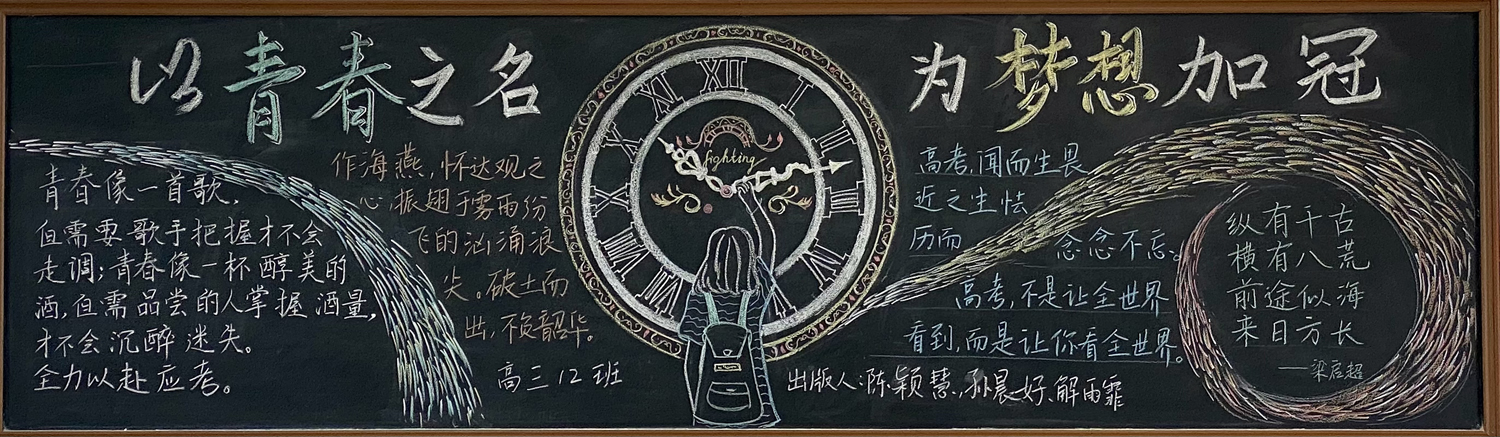 以青春之名
为梦想加冠
青春像一首歌,
但需要歌手把握才不会
走调;青春像一杯醇美的
酒,但需品尝的人掌握酒量,
才不会沉醉迷失。
全力以赴应考。
作海燕,怀达观之
心,振翅于雾雨纷
飞的汹涌浪
尖。破土而
出,不负韶华。
高三12班
XII
I
II
III
VII
VIII
IX
X
XI
fighting
高考,闻而生畏
近之生怯
历而
念念不忘。
高考,不是让全世界
看到,而是让你看全世界。
出版人:陈颖慧,孙晨好、解雨霏
纵有千古
横有八荒
前途似海
来日方长
——梁启超